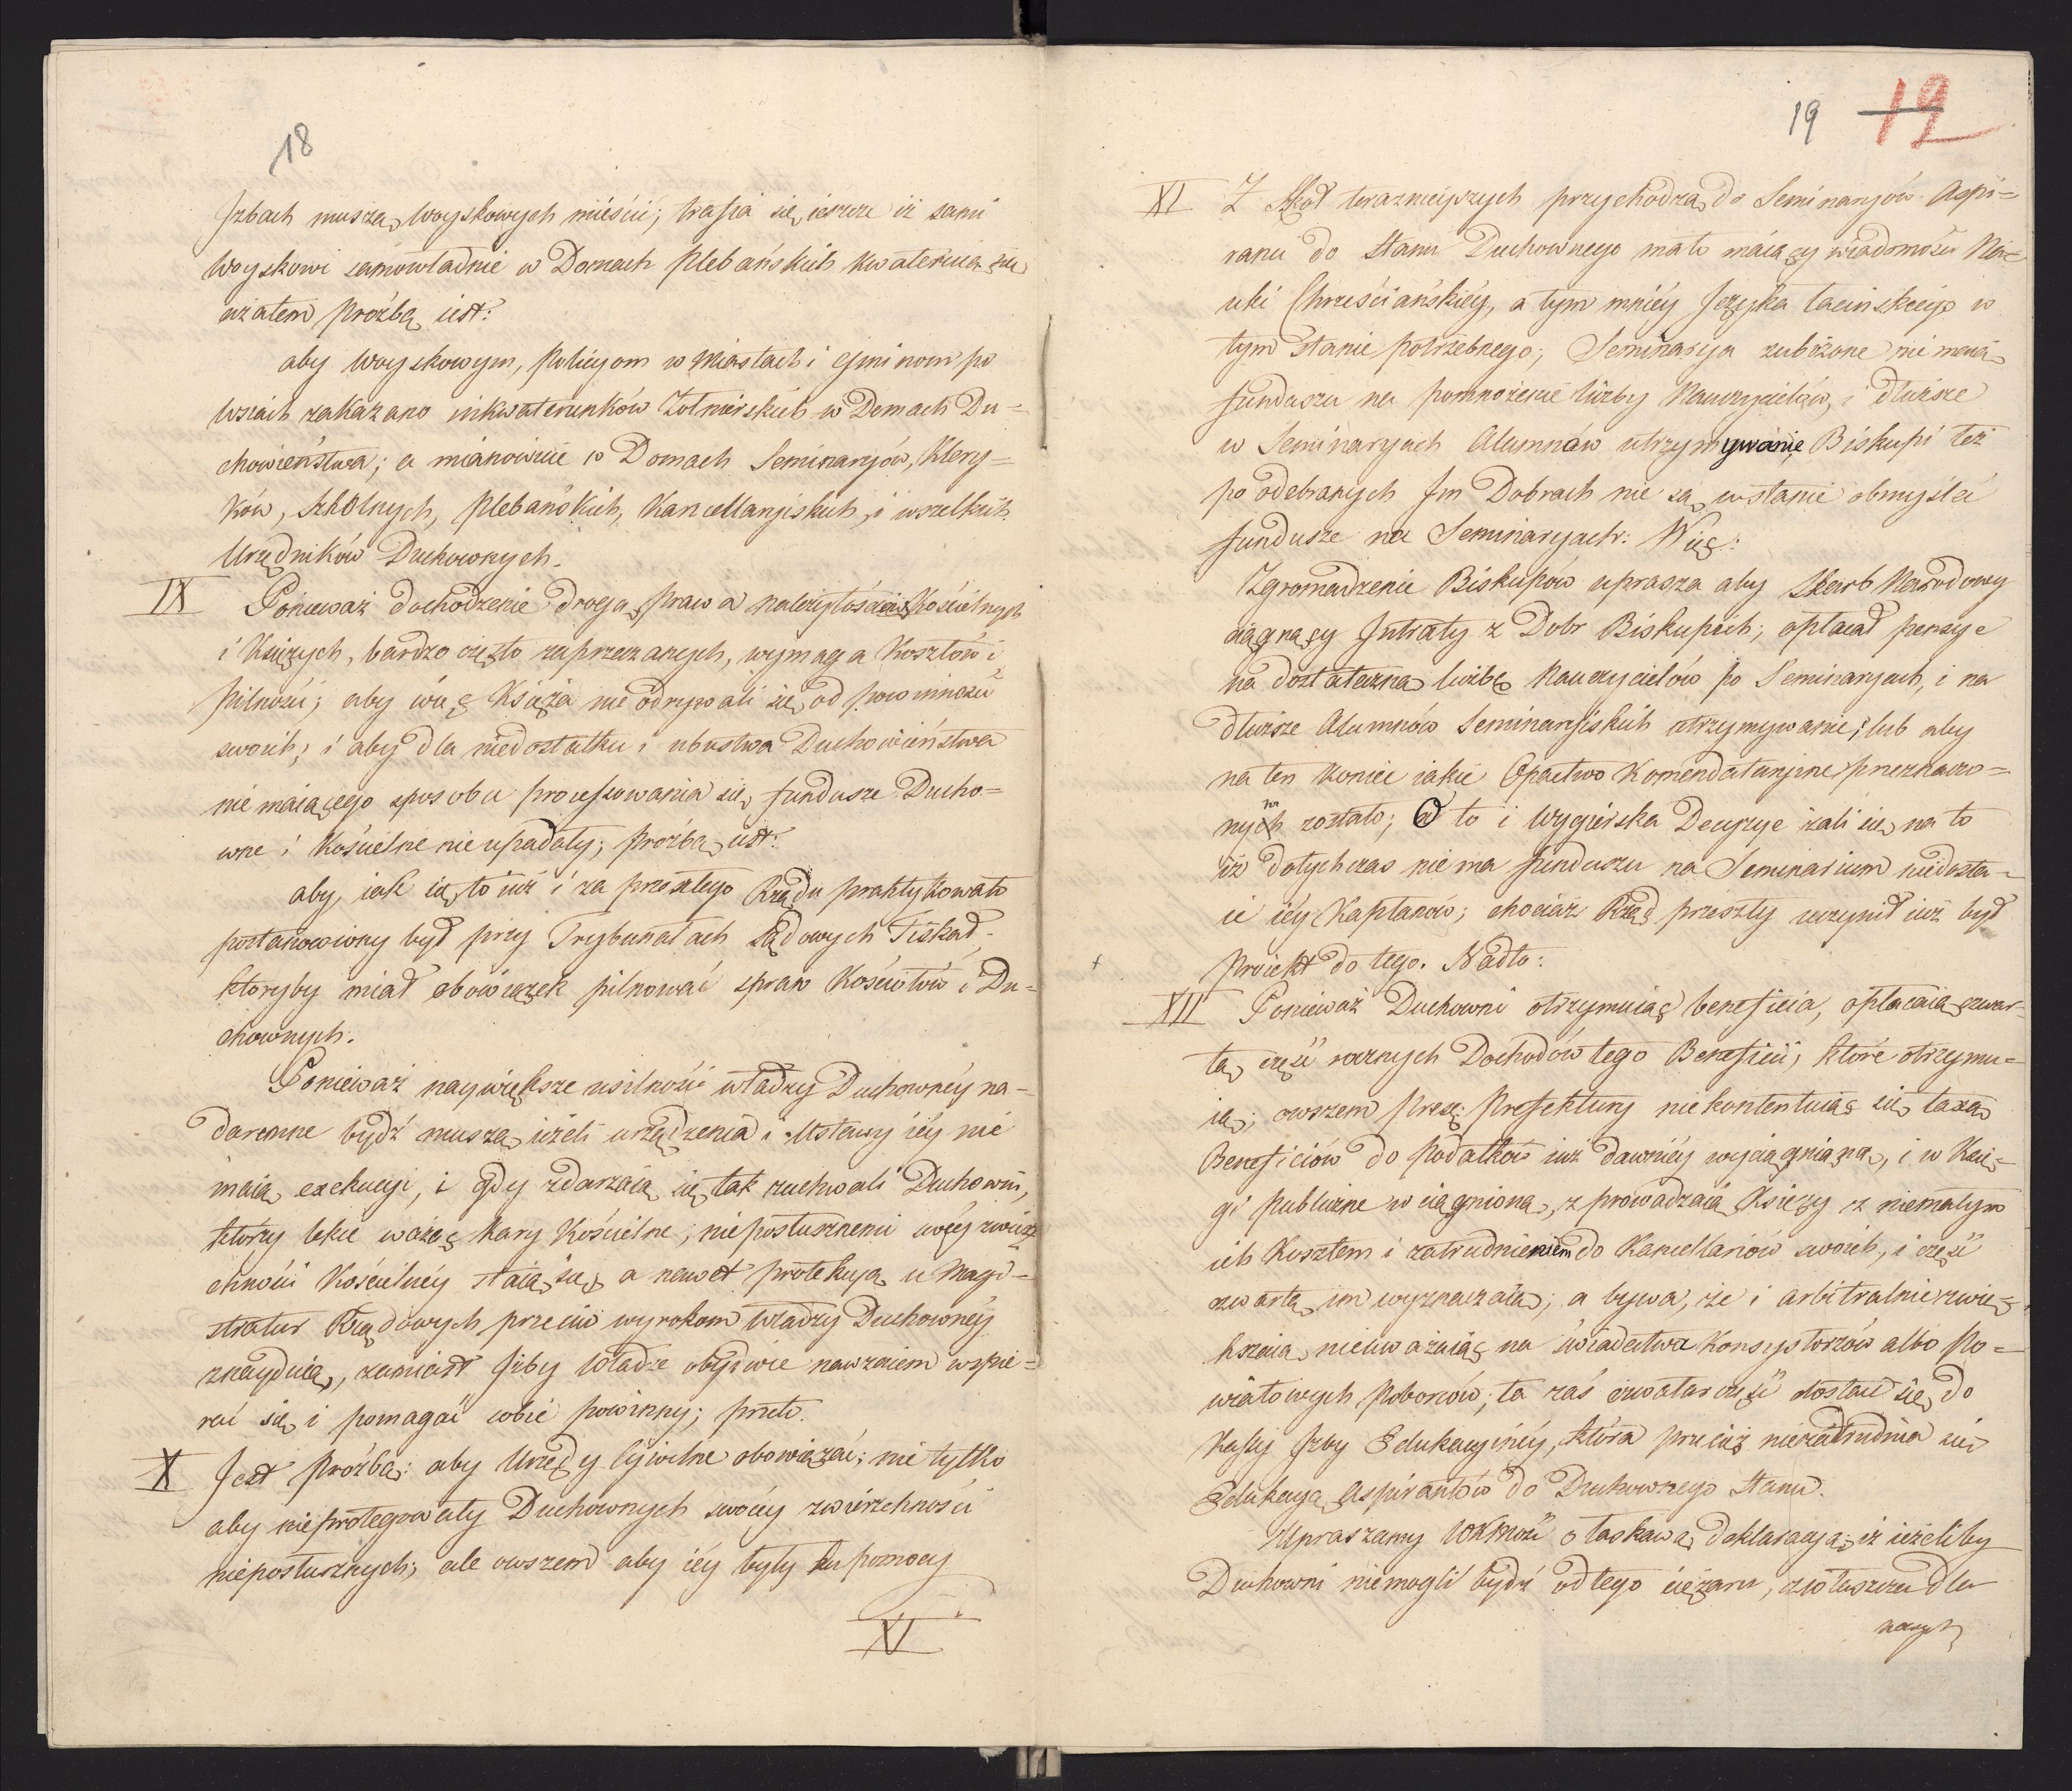 18
Jzbach muszą Woyskowych mieścić; trafia się ieszcze iż sami
Woyskowi samowładnie w Domach Plebańskich kwateruią się
azatem Prożbą iest:
aby Woyskowym, Policyom w Miastach i Gminom po
Wsiach zakazano inkwaterunków Żołnierskich w Domach Du=
chowieństwa; a mianowicie w Domach Seminaryów, Klery=
ków, Szkolnych, Plebańskich, Kancellaryiskich, i wszelkich
Urzędników Duchownych.
IX Ponieważ dochodzenie drogą prawa należytościów Kościelnych
i Księżych, bardzo często zaprzeczanych, wymaga Kosztów i
pilności; aby więc Księża nie odrywali się od powinności
swoich; i aby dla niedostatku i ubustwa Duchowieństwa
nie maiącego sposobu processowania się fundusze Ducho=
wne i Kościelne nie upadały; prożbą iest:
aby, iak się to iuż i za przeszłego Rządu praktykowało
postanowiony był przy Trybunałach Sądowych Fiskał,
ktoryby miał obowiązek pilnować spraw Kościołów i Du=
chownych.
Ponieważ naywiększe usilności władzy Duchownéy na=
daremne bydź muszą, ieżeli urządzenia i Ustawy iéy nie
maią exekucyi, i gdy zdarzaią się tak zuchwali Duchowni,
ktorzy lekce ważąc kary Kościelne, nieposłusznemi swéy zwierz=
chności Kościelnéy staią się, a nawet protekcyą u Magi=
stratur Rządowych przeciw wyrokom władzy Duchownéy
znayduią, zamiast żeby Władze obydwie nawzaiem wspie=
rać się i pomagać sobie powinny; przeto.
X Jest Prożbą: aby Urzędy Cywilne obowiązać; nie tylko
aby nieprotegowały Duchownych swoiéy zwierzchności
nieposłusznych; ale owszem aby iéy były ku pomocy
XI
19 19
XI Z Szkoł teraznieyszych przychodzą do Seminaryów Aspi=
ranci do Stanu Duchownego mało maiący wiadomości Na=
uki Chrześciańskiéy, a tym mniéy Języka łacińskiego w
tym stanie potrzebnego; Seminarya zubożone nie maią
funduszu na pomnożenie liczby Nauczycielów, i dłuższe
w Seminaryach Alumnów utrzymywanie, Biskupi też
po odebranych Jm Dobrach nie są w stanie obmyśleć
fundusze na Seminaryach: Więc:
Zgromadzenie Biskupów uprasza aby Skarb Narodowy
ciągnący Jntraty z Dobr Biskupich; opłacał pensye
na dostateczną liczbę Nauczycielów po Seminaryach, i na
dłuższe Alumnów Seminaryiskich utrzymywanie; lub aby
na ten koniec iakie Opactwo Komendataryine przeznaczo=
nym zostało; A to i Wygierska Decyzye żali się na to
iż dotychczas nie ma funduszu na Seminarium niedosta=
ie iéy Kapłanów; chociaż Rząd przeszły uczynił iuż był
proiekt do tego. Nadto:
XII Ponieważ Duchowni otrzymuiąc beneficia, opłacaią czwar=
tą część rocznych Dochodów tego Beneficii, ktore otrzymu=
ią; owszem Preze: Prefektury niekontentuiąc się taxą
Beneficiów do Podatków iuż dawniéy wyciągnianą, i w Księ=
gi Publiczne wciągnioną, zprowadzaią Księży z niemałym
ich Kosztem i zatrudnieniem do Kancellariów swoich, i część
czwartą im wyznaczaią; a bywa, że i arbitralnie zwię=
kszaią nieuważaiąc na świadectwa Konsystorzów albo Po=
wiatowych Poborców; ta zaś czwarta część dostaie się do
Kassy Jzby Edukacyinéy, która przecież niezatrudnia się
Edukacyą Aspirantów do Duchownego Stanu.
Upraszamy WKMość o łaskawą deklaracyą; iż ieżeliby
Duchowni niemogli bydź od tego ciężaru, zwłaszcza dla